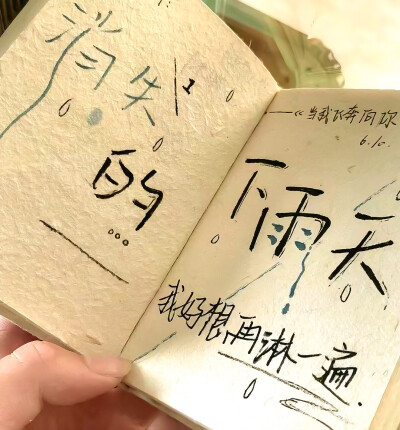 消失
的
——《当我飞奔向你
6.10.
下雨天
我好想再淋一遍.